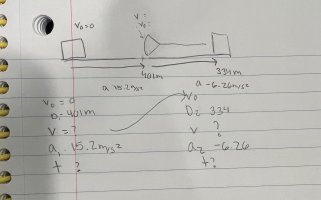 V₀=0
V:
V₀:
401m
334m
a 15.2m/s²
a -6.26m/s²
V₀ = 0
D= 401m
V = ?
a₁ 15.2m/s²
t ?
V₀
D₂ 334
V ?
a₂ -6.26
t?